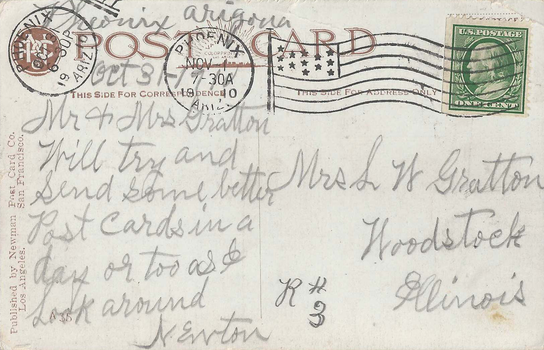 Pheonix Arizona
POST CARD
PHOENIX
6-30P
19
ARIZ.
Oct 31-1
PHOENIX
NOV 1
7-30A
19 10
ARIZ.
U.S. POSTAGE
ONE CENT
THIS SIDE FOR CORRESPONDENCE
THIS SIDE FOR ADDRESS ONLY
Mr & Mrs Gratton
Will try and
send some better
Post Cards in a
day or too as I
Look around
Newton
Mrs L W Gratton
Woodstock
Illinois
R #
3
Published by Newman Post Card Co.
Los Angeles. San Francisco.